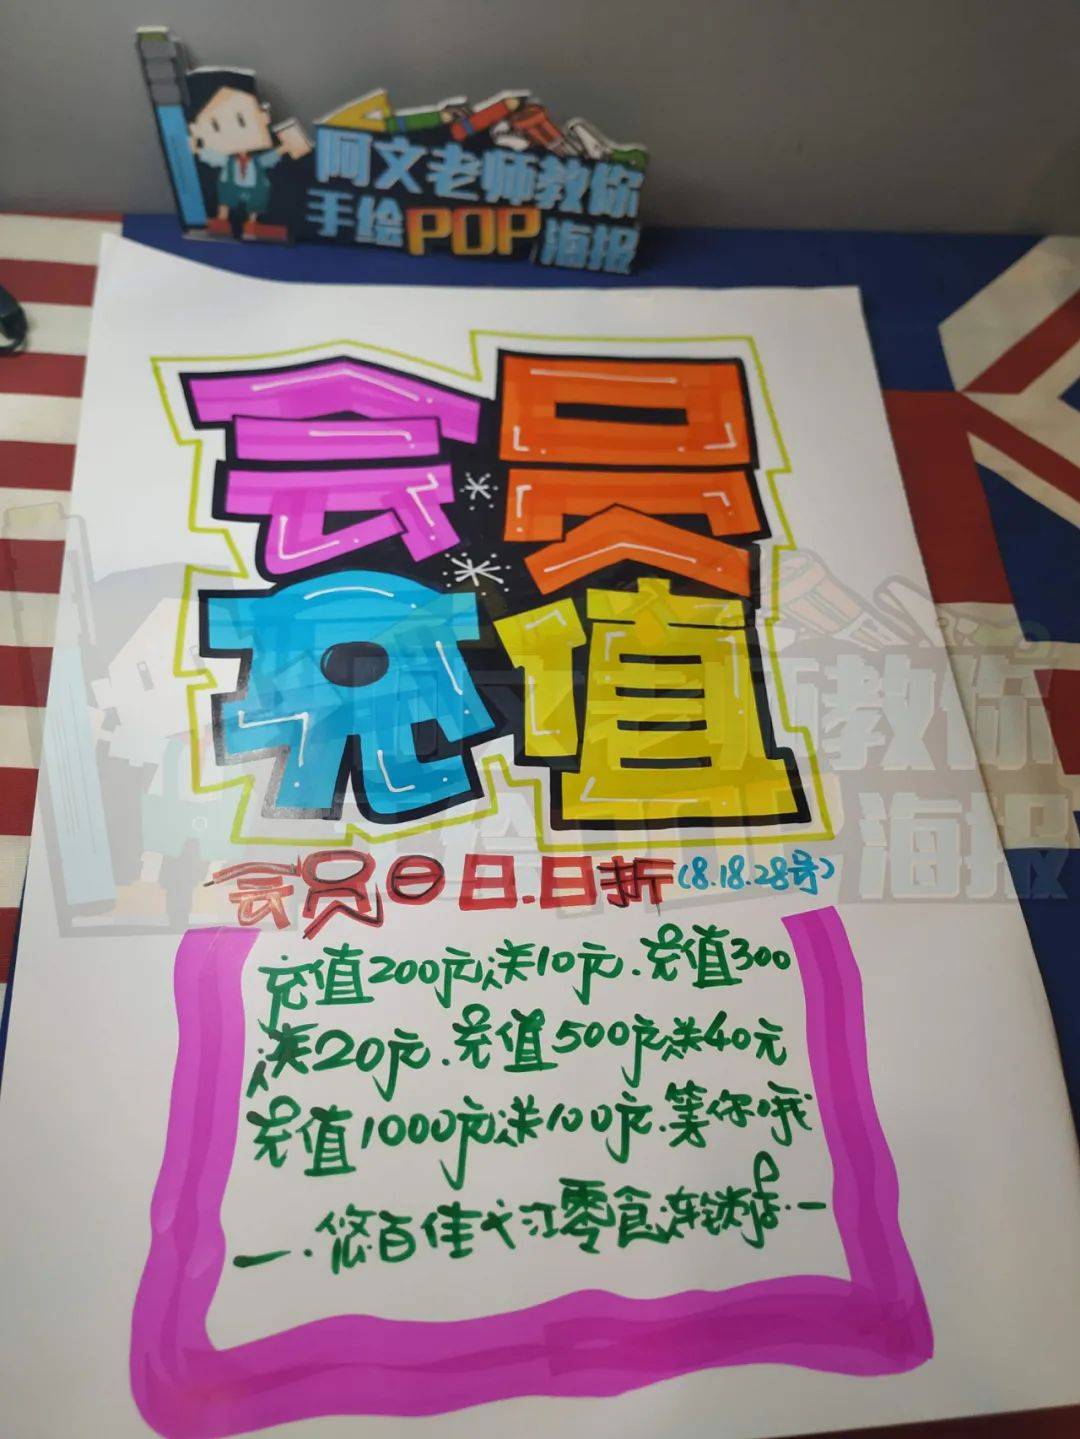 阿文老师教你
手绘POP海报
会员
充值
会员日日.日折(8.18.28号)
充值200元送10元.充值300
送20元.充值500元送40元
充值1000元送100元.等你哦
一.悠百佳弋江零食连锁店.一
阿文老师教你
手绘POP海报